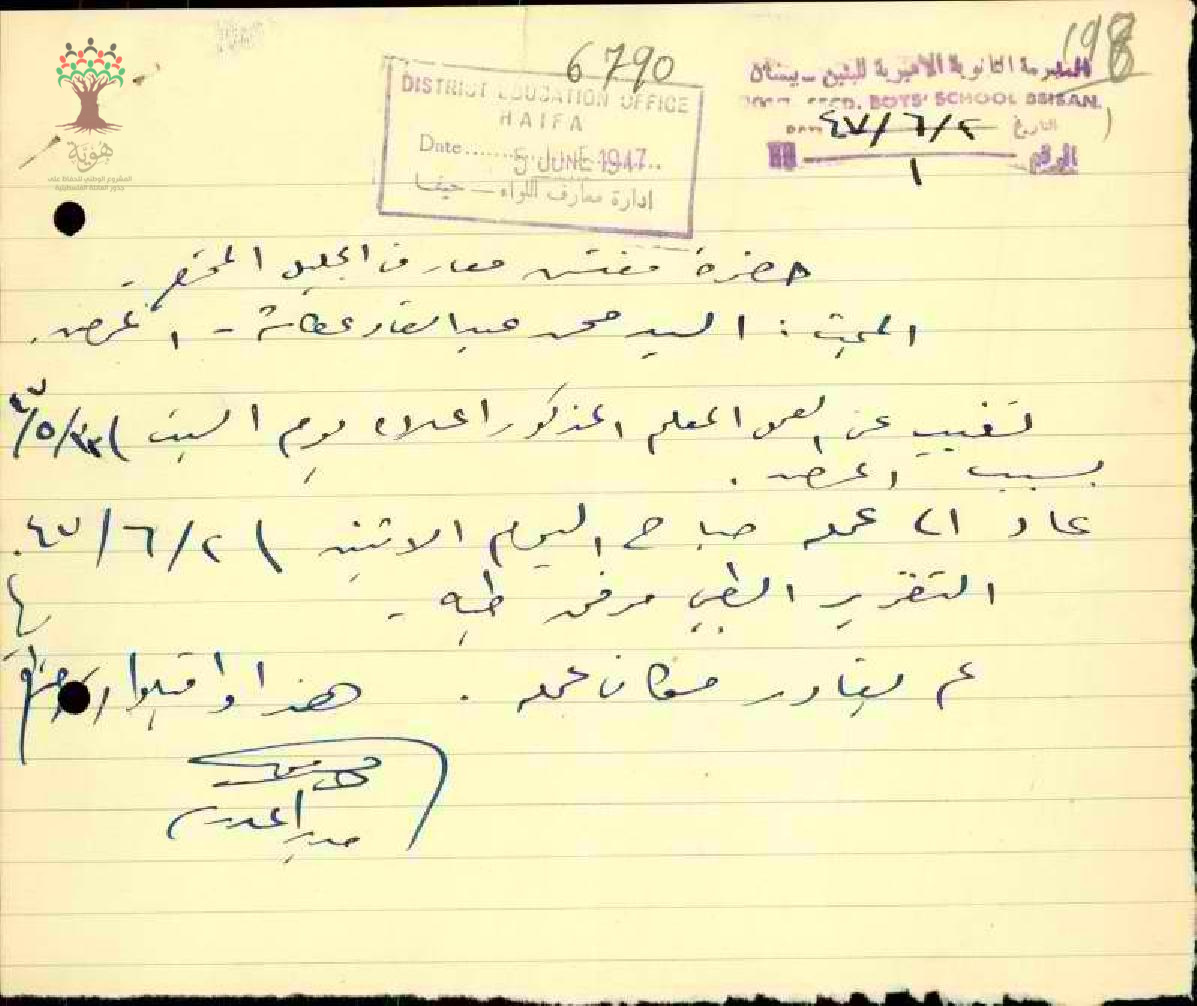 198
6790
المدرسة الثانوية الأميرية للبنين - بيسان
GOVT. SECD. BOYS' SCHOOL BEISAN.
DATE ٤٧/٦/٢ التاريخ
١ الرقم
DISTRICT EDUCATION OFFICE
HAIFA
Date....... 5 JUNE 1947..
ادارة معارف اللواء — حيفا
هوية
المشروع الوطني للحفاظ على
جذور العائلة الفلسطينية
حضرة مفتش معارف الجليل المحترم
المبحث : السيد محمد عبدالقادر - المرض .
تغيب عن العمل المعلم المذكور اعلاه يوم السبت
بسبب المرض .
عاد الى عمله صباح اليوم الاثنين ٤٧/٦/٢ .
التقرير الطبي مرفق طيه -
لم يغادر مكان عمله . هذا واقبلوا
مدير المدرسة